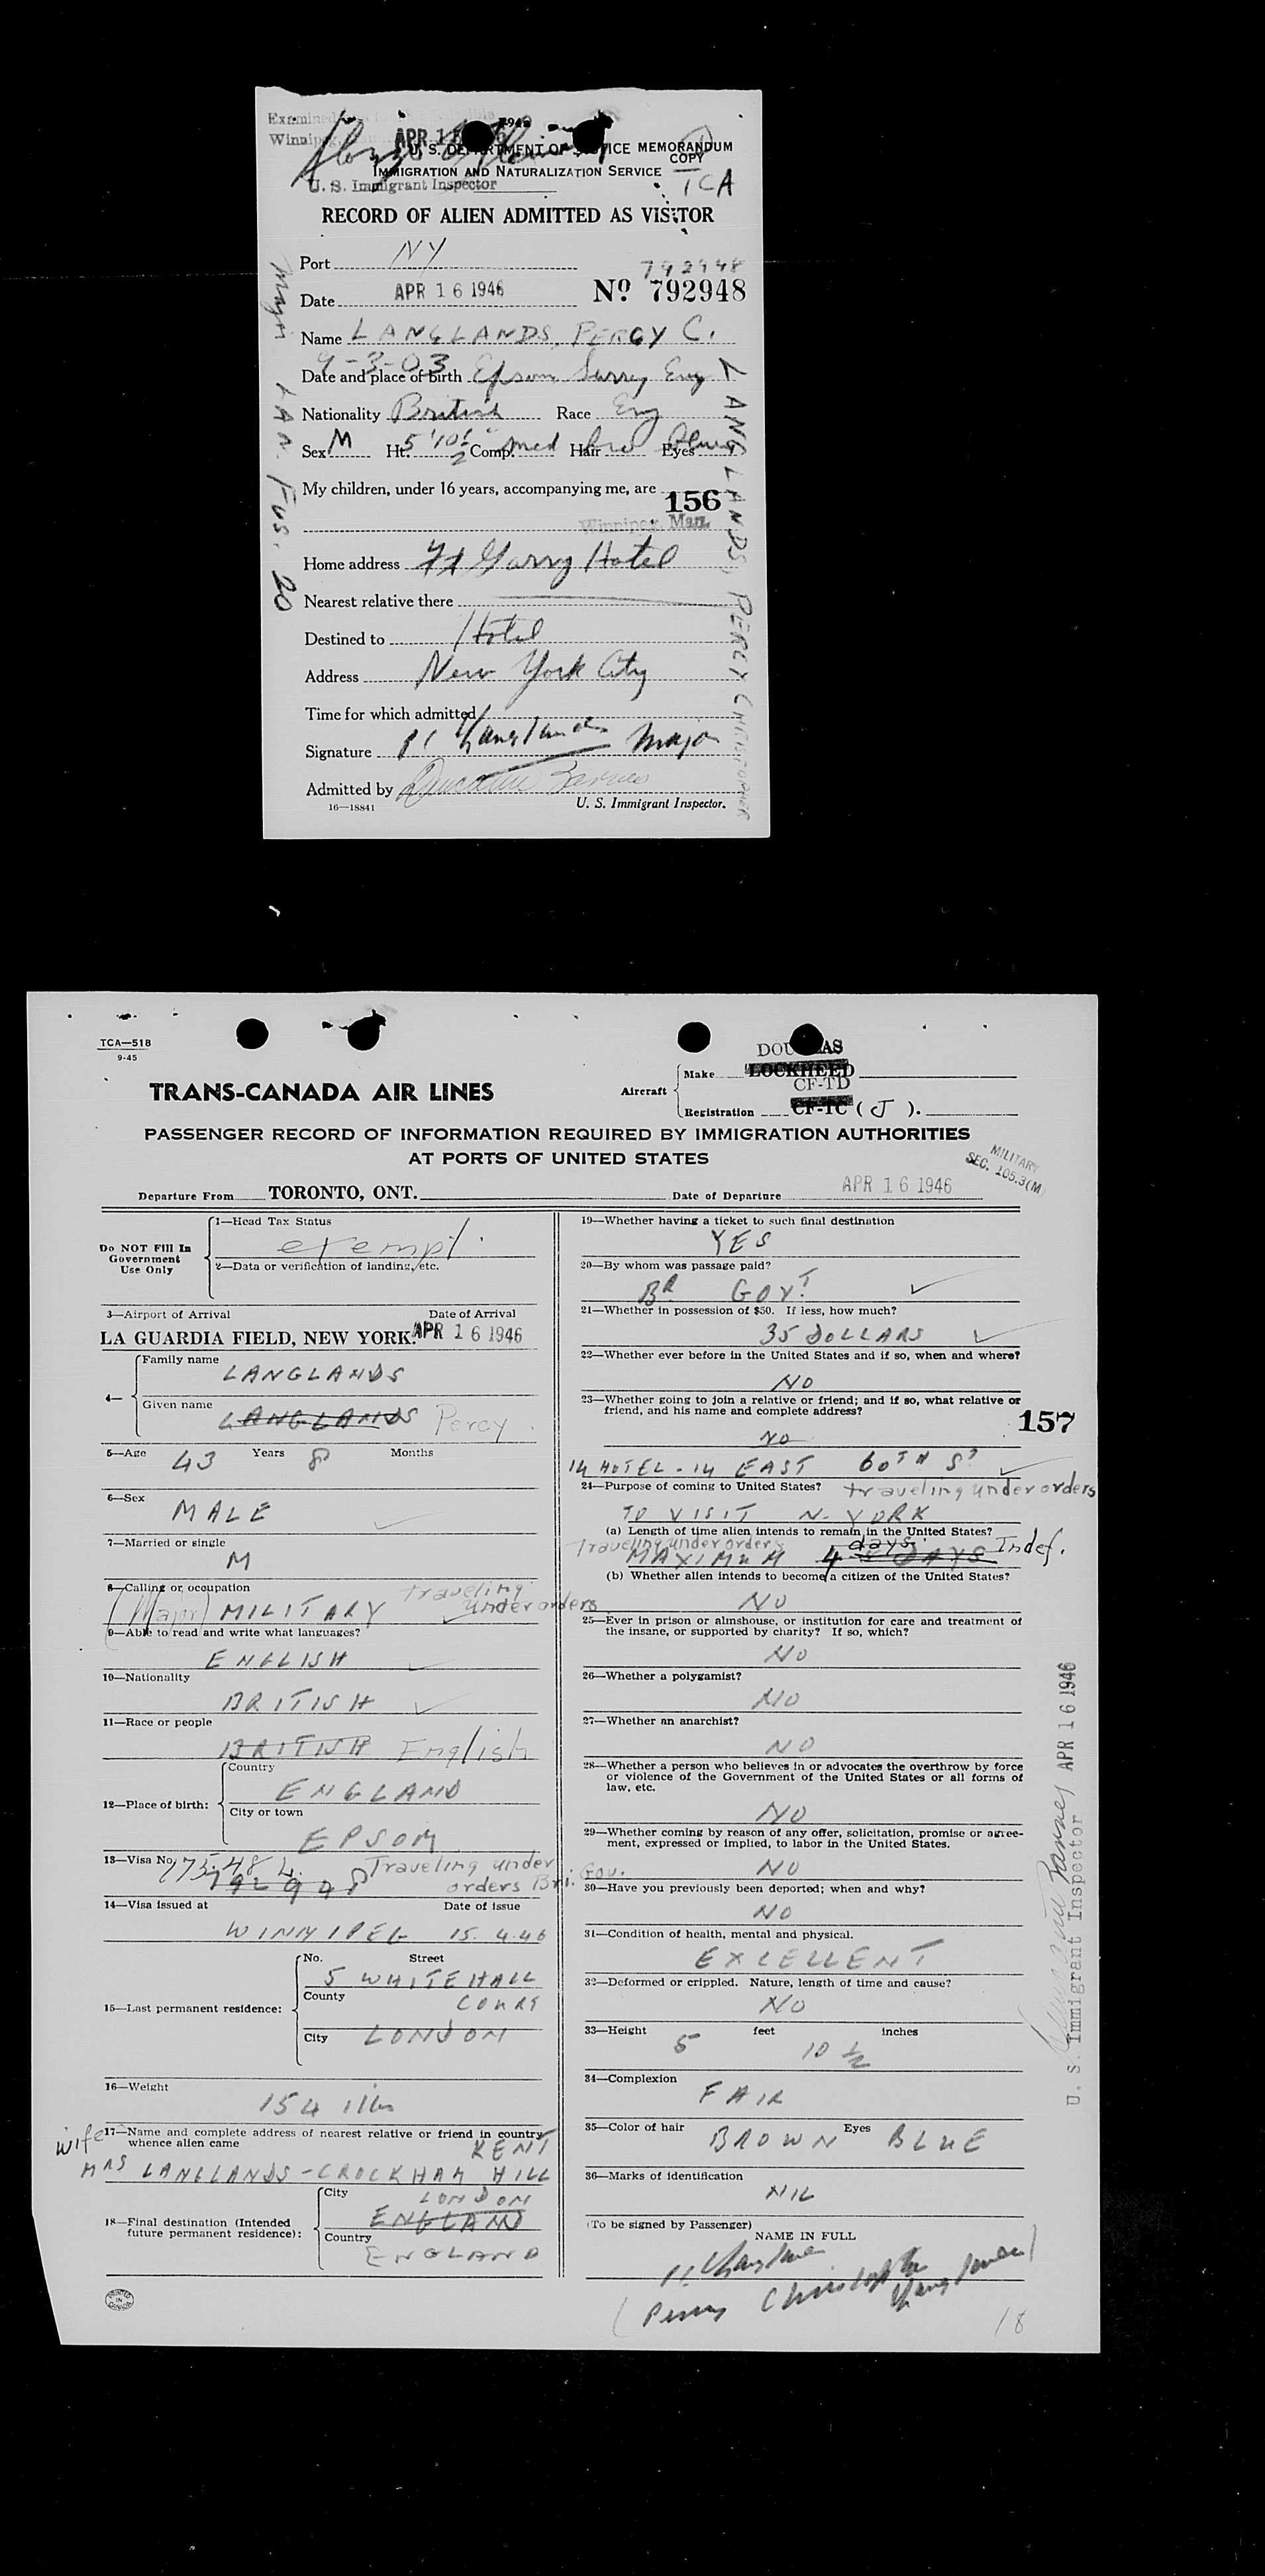 Examined
Winnipeg
APR 1
U. S. DEPARTMENT OF JUSTICE MEMORANDUM
COPY
IMMIGRATION AND NATURALIZATION SERVICE
TCA
U. S. Immigrant Inspector
RECORD OF ALIEN ADMITTED AS VISITOR
Port NY
792948
Date APR 16 1946 No 792948
Name LANGLANDS, PERCY C.
9-3-03
Date and place of birth Epsom Surrey Eng
Nationality British Race Eng
Sex M Ht. 5'10½" Comp. med Hair bro Eyes
My children, under 16 years, accompanying me, are
156
Winnipeg, Man.
Home address Ft Garry Hotel
Nearest relative there
Destined to Hotel
Address New York City
Time for which admitted
Signature P C Langlands Major
Admitted by
16—18841 U. S. Immigrant Inspector.
LAN. FUS. 20
LANGLANDS, PERCY CHRISTOPHER
TCA—518
9-45
TRANS-CANADA AIR LINES
Aircraft
DOUGLAS
Make LOCKHEED
CF-TD
Registration CF-TC ( J ).
PASSENGER RECORD OF INFORMATION REQUIRED BY IMMIGRATION AUTHORITIES
AT PORTS OF UNITED STATES
MILITARY
SEC. 105.3(M)
Departure From TORONTO, ONT. Date of Departure APR 16 1946
Do NOT Fill In
Government
Use Only
1—Head Tax Status
exempt.
2—Data or verification of landing, etc.
3—Airport of Arrival Date of Arrival
LA GUARDIA FIELD, NEW YORK. APR 16 1946
4—
Family name
LANGLANDS
Given name
LANGLANDS Percy
5—Age 43 Years 8 Months
6—Sex
MALE
7—Married or single
M
8—Calling or occupation
(Major) MILITARY traveling under orders
9—Able to read and write what languages?
ENGLISH
10—Nationality
BRITISH
11—Race or people
BRITISH English
12—Place of birth:
Country
ENGLAND
City or town
EPSOM
13—Visa No. 175484
792948 Traveling under
orders Bri. Gov.
14—Visa issued at Date of issue
WINNIPEG 15. 4.46
15—Last permanent residence:
No. Street
5 WHITEHALL
County COURT
City LONDON
16—Weight
154 lbs
wife
17—Name and complete address of nearest relative or friend in country
whence alien came KENT
MRS LANGLANDS - CROCKHAM HILL
18—Final destination (Intended
future permanent residence):
City LONDON
ENGLAND
Country
ENGLAND
PRINTED IN CANADA
19—Whether having a ticket to such final destination
YES
20—By whom was passage paid?
BR GOVT
21—Whether in possession of $50. If less, how much?
35 DOLLARS
22—Whether ever before in the United States and if so, when and where?
NO
23—Whether going to join a relative or friend; and if so, what relative or
friend, and his name and complete address?
157
NO
14 HOTEL - 14 EAST 60TH ST
24—Purpose of coming to United States? traveling under orders
TO VISIT N. YORK
(a) Length of time alien intends to remain in the United States?
Traveling under orders
MAXIMUM 4 days DAYS Indef.
(b) Whether alien intends to become a citizen of the United States?
NO
25—Ever in prison or almshouse, or institution for care and treatment of
the insane, or supported by charity? If so, which?
NO
26—Whether a polygamist?
NO
27—Whether an anarchist?
NO
28—Whether a person who believes in or advocates the overthrow by force
or violence of the Government of the United States or all forms of
law, etc.
NO
29—Whether coming by reason of any offer, solicitation, promise or agree-
ment, expressed or implied, to labor in the United States.
NO
30—Have you previously been deported; when and why?
NO
31—Condition of health, mental and physical.
EXCELLENT
32—Deformed or crippled. Nature, length of time and cause?
NO
33—Height 5 feet 10 ½ inches
34—Complexion
FAIR
35—Color of hair BROWN Eyes BLUE
36—Marks of identification
NIL
(To be signed by Passenger)
NAME IN FULL
P C Langlands
(Percy Christopher Langlands)
18
U. S. Immigrant Inspector APR 16 1946